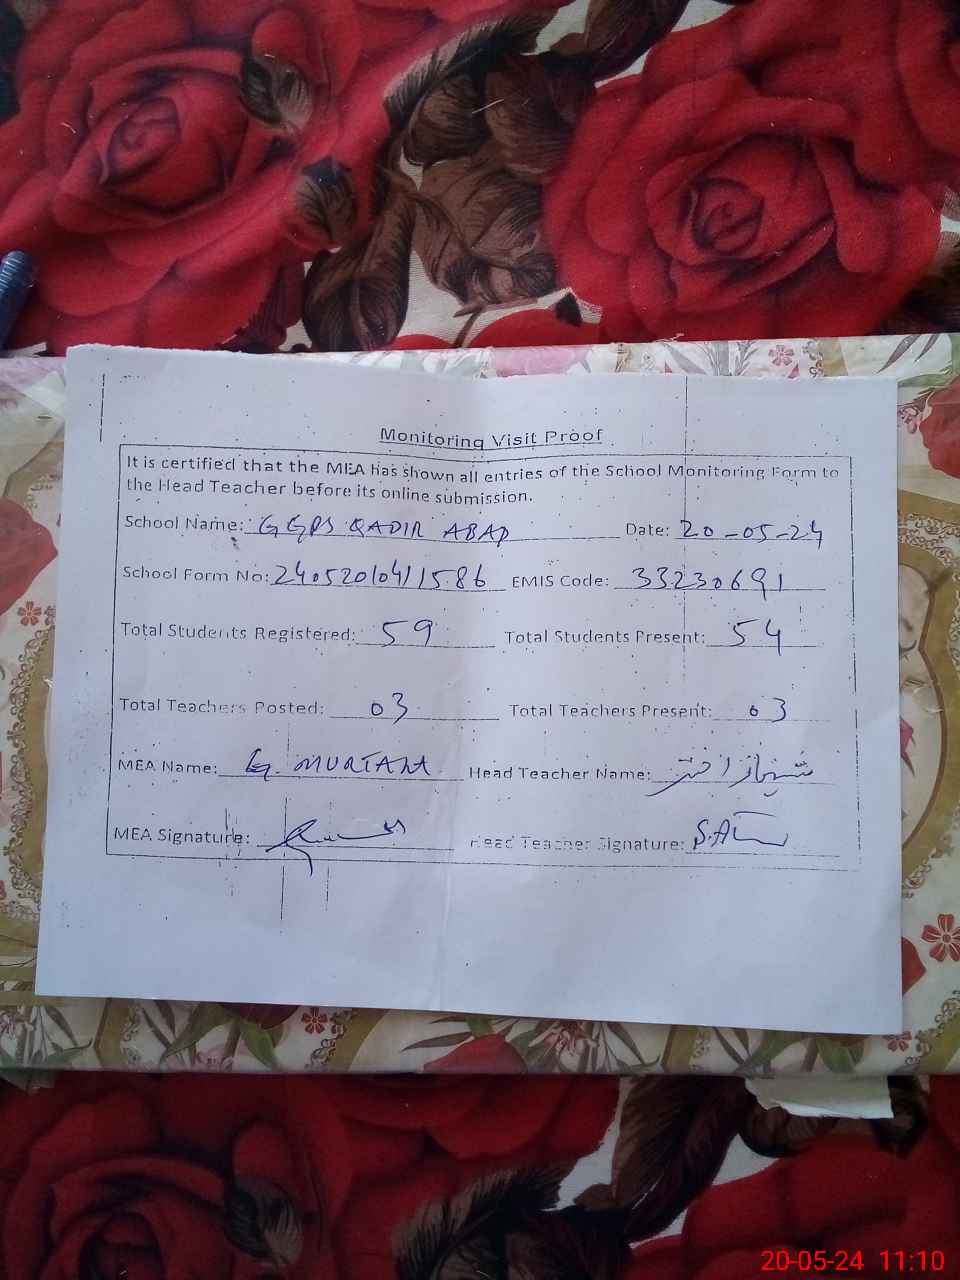 Monitoring Visit Proof
It is certified that the MEA has shown all entries of the School Monitoring Form to
the Head Teacher before its online submission.
School Name: GGPS QADIR ABAD Date: 20-05-24
School Form No: 240520104111586 EMIS Code: 33230691
Total Students Registered: 59 Total Students Present: 54
Total Teachers Posted: 03 Total Teachers Present: 03
MEA Name: G. MURTAZA Head Teacher Name: شہناز اختر
MEA Signature: Head Teacher Signature:
20-05-24 11:10